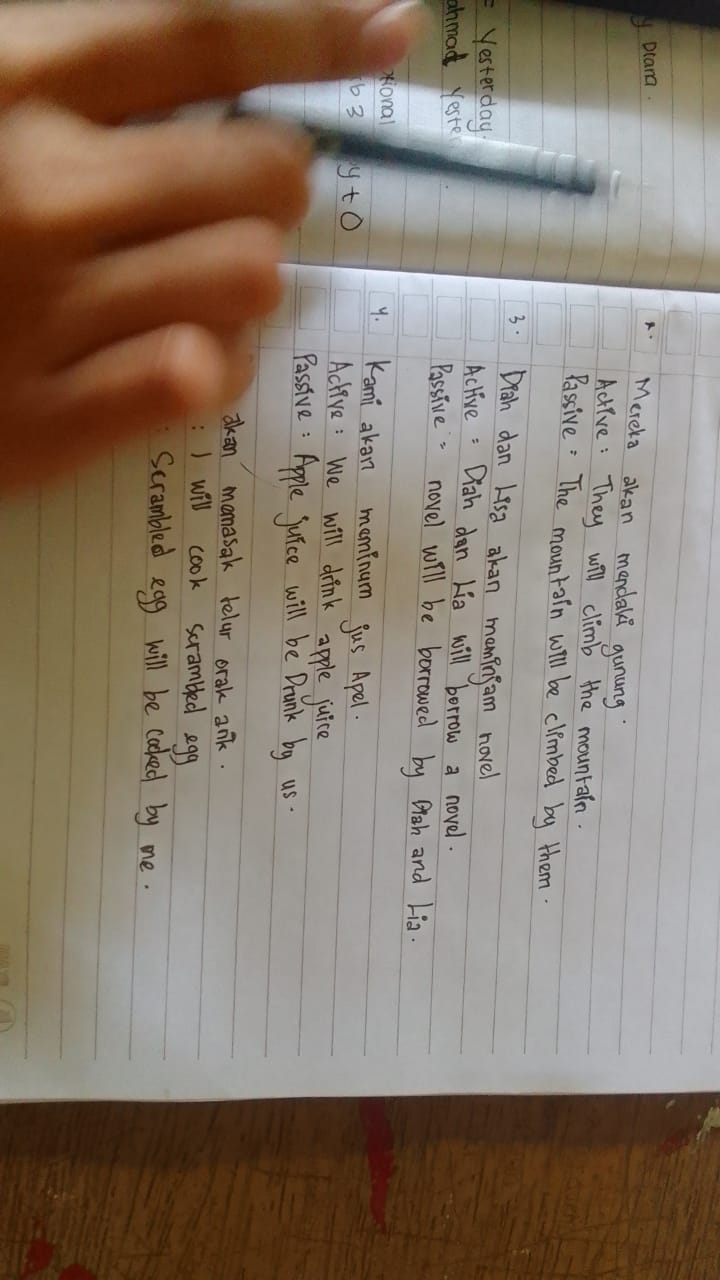 y Diana.
= Yesterday.
ahmad Yester
xional
b 3 by + O
2. Mereka akan mendaki gunung.
Active : They will climb the mountain.
Passive = The mountain will be climbed by them.
3. Diah dan Lisa akan meminjam novel
Active = Diah dan Lia will borrow a novel.
Passive = novel will be borrowed by Diah and Lia.
4. Kami akan meminum jus Apel.
Active : We will drink apple juice
Passive : Apple juice will be Drunk by us.
akan memasak telur orak arik.
: I will cook scrambled egg
: Scrambled egg will be cooked by me.